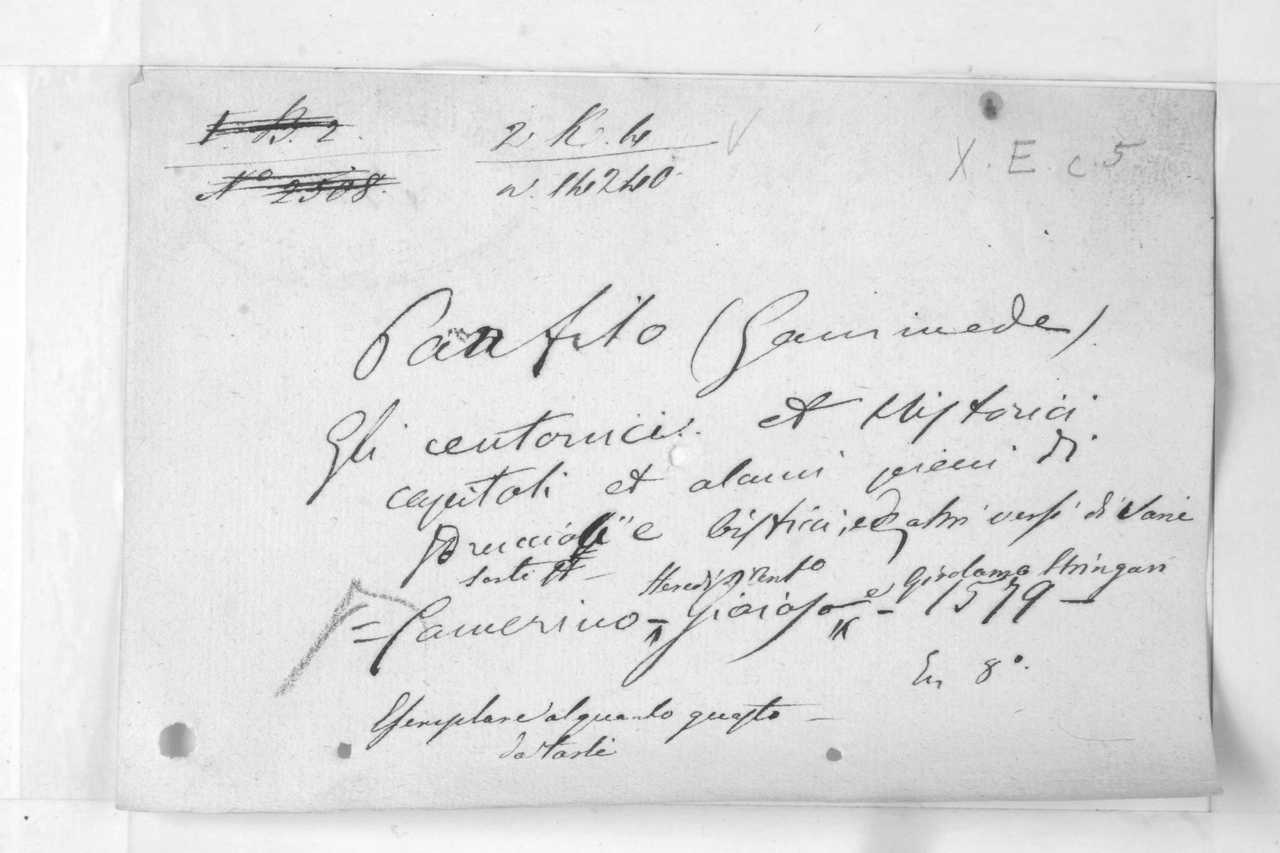 1. B. 2.
2. K. 4
X. E. c. 5
N° 2508.
n. 14240.
Panfilo (Ganimede).
Gli centonici et Historici
capitoli et alcuni pieni di
sdruccioli e bistici, ed altri versi di varie
sorti
Camerino Heredi d'Antº Gioioso e Girolamo Stringari 1579
In 8°.
Esemplare alquanto guasto
da tarli